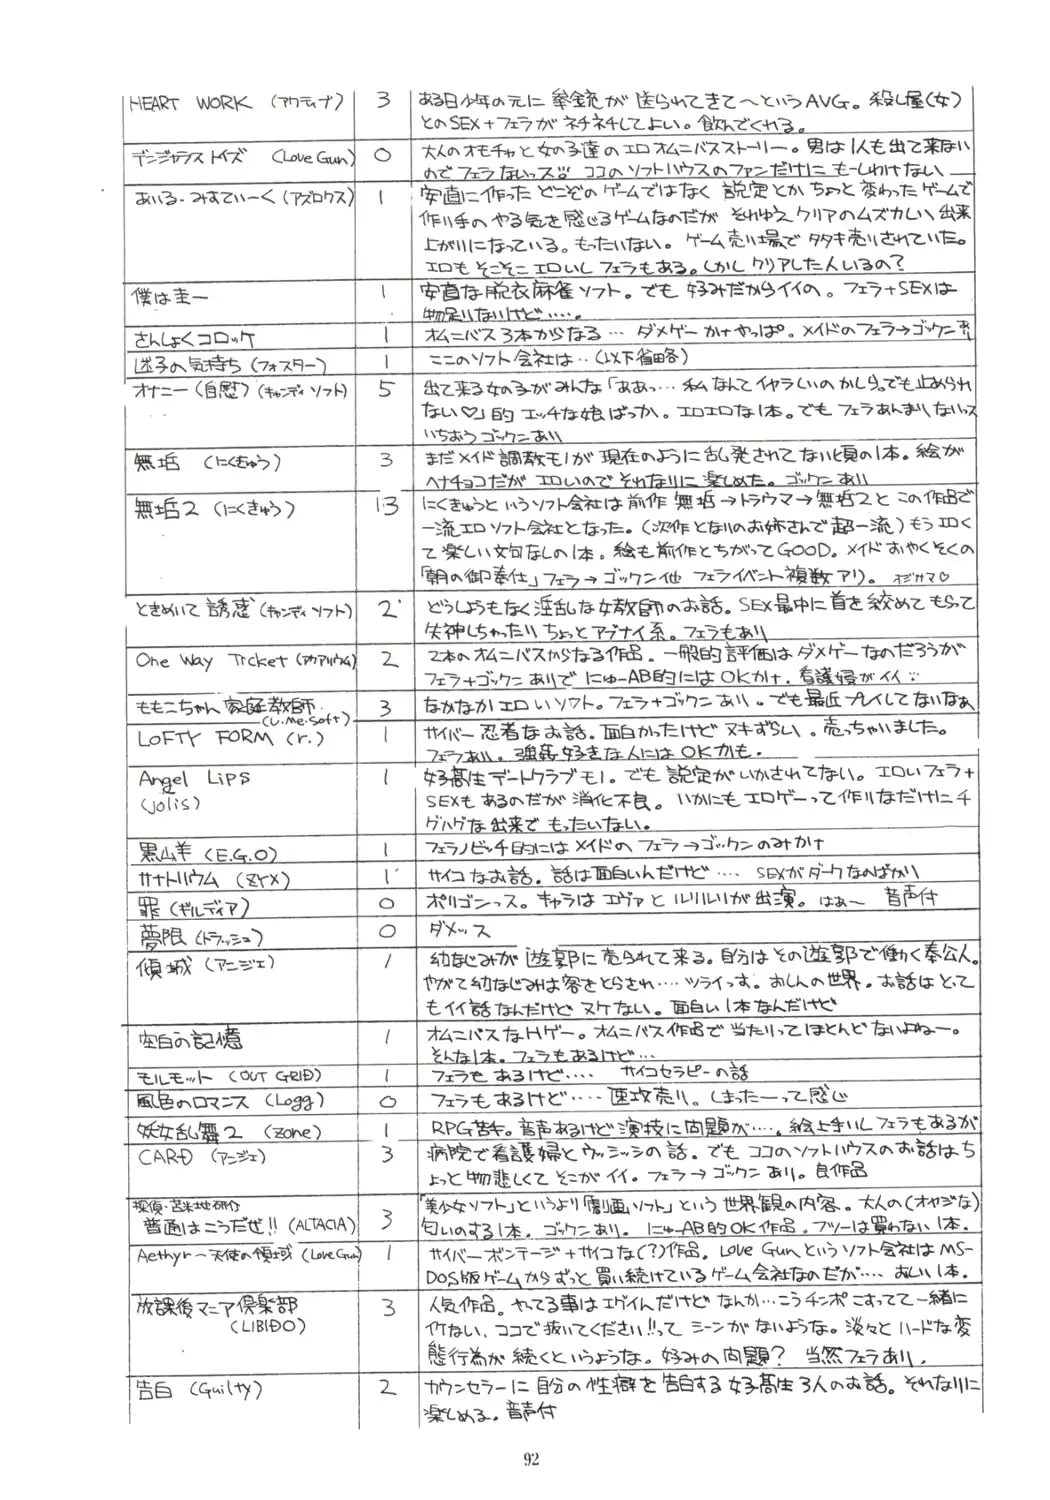 HEART WORK (アクティブ) 3 ある日少年の元に拳銃が送られてきて〜というAVG。殺し屋(女)
とのSEX+フェラがネチネチしてよい。飲んでくれる。
デンジャラストイズ (Love Gun) 0 大人のオモチャと女の子達のエロオムニバスストーリー。男は1人も出て来ない
のでフェラないっス!! ココのソフトハウスのファンだけにもーしわけない
あいる・みすてぃーく(アズロウス) 1 安直に作ったどこぞのゲームではなく設定とかちょっと変わったゲームで
作り手のやる気を感じるゲームなのだがそれゆえクリアのムズカしい出来
上がりになっている。もったいない。ゲーム売り場でタタキ売りされていた。
エロもそこそこエロいしフェラもある。しかしクリアした人いるの?
僕は圭一 1 安直な脱衣麻雀ソフト。でも好みだからイイの。フェラ+SEXは
物足りないけど……。
さんしょくコロッケ 1 オムニバス3本からなる… ダメゲーかナやっぱ。メイドのフェラ→ゴックン
迷子の気持ち(フォスター) 1 ここのソフト会社は‥(以下省略)
オナニー(自慰)(キャンディソフト) 5 出て来る女の子がみんな「ああっ…私なんてイヤラしいのかしら。でも止められ
ない♡」的エッチな娘ばっか。エロエロな1本。でもフェラあんまりないっス
いちおうゴックンあり
無垢 (にくきゅう) 3 まだメイド調教モノが現在のように乱発されてない頃の1本。絵が
ヘナチョコだがエロいのでそれなりに楽しめた。ゴックンあり
無垢2 (にくきゅう) 13 にくきゅうというソフト会社は前作無垢→トラウマ→無垢2とこの作品で
一流エロソフト会社となった。(次作となりのお姉さんで超一流)もうエロく
て楽しい文句なしの1本。絵も前作とちがってGOOD。メイドおやくそくの
「朝の御奉仕」フェラ→ゴックン他 フェライベント複数アリ。オジサマ♡
ときめいて誘惑(キャンディソフト) 2 どうしようもなく淫乱な女教師のお話。SEX最中に首を絞めてもらって
失神しちゃったりちょっとアブナイ系。フェラもあり
One Way Ticket(アクアリウム) 2 2本のオムニバスからなる作品。一般的評価はダメゲーなのだろうが
フェラ+ゴックンありでにゅーAB的にはOKかナ。看護婦がイイ
ももこちゃん家庭教師 3 なかなかエロいソフト。フェラ+ゴックンあり。でも最近プレイしてないなぁ
(U・Me・soft)
LOFTY FORM (r.) 1 サイバー忍者なお話。面白かったけどヌキずらい。売っちゃいました。
フェラあり。強姦好きな人にはOKかも。
Angel Lips 1 女子高生デートクラブモノ。でも設定がいかされてない。エロいフェラ+
(Jolis) SEXもあるのだが消化不良。いかにもエロゲーって作りなだけにチ
グハグな出来でもったいない。
黒山羊 (E.G.O) 1 フェラノビッチ的にはメイドのフェラ→ゴックンのみかナ
サナトリウム (Zyx) 1 サイコなお話。話は面白いんだけど…‥ SEXがダークなのばかり
罪(ギルティア) 0 ポリゴンっス。キャラはエヴァとルリルリが出演。はぁ〜 音声付
夢限(トラッシュ) 0 ダメッス
傾城(アンジェ) 1 幼なじみが遊郭に売られて来る。自分はその遊郭で働く奉公人。
やがて幼なじみは客をとらされ…‥ツライっす。おしんの世界。お話はとって
もイイ話なんだけどヌケない。面白い1本なんだけど
空白の記憶 1 オムニバスなHゲー。オムニバス作品で当たりってほとんどないよねー。
そんな1本。フェラもあるけど…
モルモット (OUT GRID) 1 フェラもあるけど…‥ サイコセラピーの話
風色のロマンス(Logg) 0 フェラもあるけど…… 速攻売り。しまったーって感じ
妖女乱舞2 (Zone) 1 RPG苦手。音声あるけど演技に問題が…‥。絵上手いしフェラもあるが
CARD (アンジェ) 3 病院で看護婦とウッシッシの話。でもココのソフトハウスのお話はち
ょっと物悲しくてそこがイイ。フェラ→ゴックンあり。良作品
探偵・苫米地研介 3 「美少女ソフト」というより「劇画ソフト」という世界観の内容。大人の(オヤジな)
普通はこうだぜ!! (ALTACIA) 匂いのする1本。ゴックンあり。にゅーAB的OK作品。フツーは買わない1本。
Aethyr〜天使の領域 (Love Gun) 1 サイバーボンテージ+サイコな(?)作品。Love Gunというソフト会社はMS-
DOS版ゲームからずっと買い続けているゲーム会社なのだが…‥おしい1本。
放課後マニア倶楽部 3 人気作品。ヤってる事はエグイんだけどなんか…こうチンポこすってて一緒に
(LIBIDO) イケない、ココで抜いてください!!ってシーンがないような。淡々とハードな変
態行為が続くというような。好みの問題? 当然フェラあり。
告白 (Guilty) 2 カウンセラーに自分の性癖を告白する女子高生3人のお話。それなりに
楽しめる。音声付
92